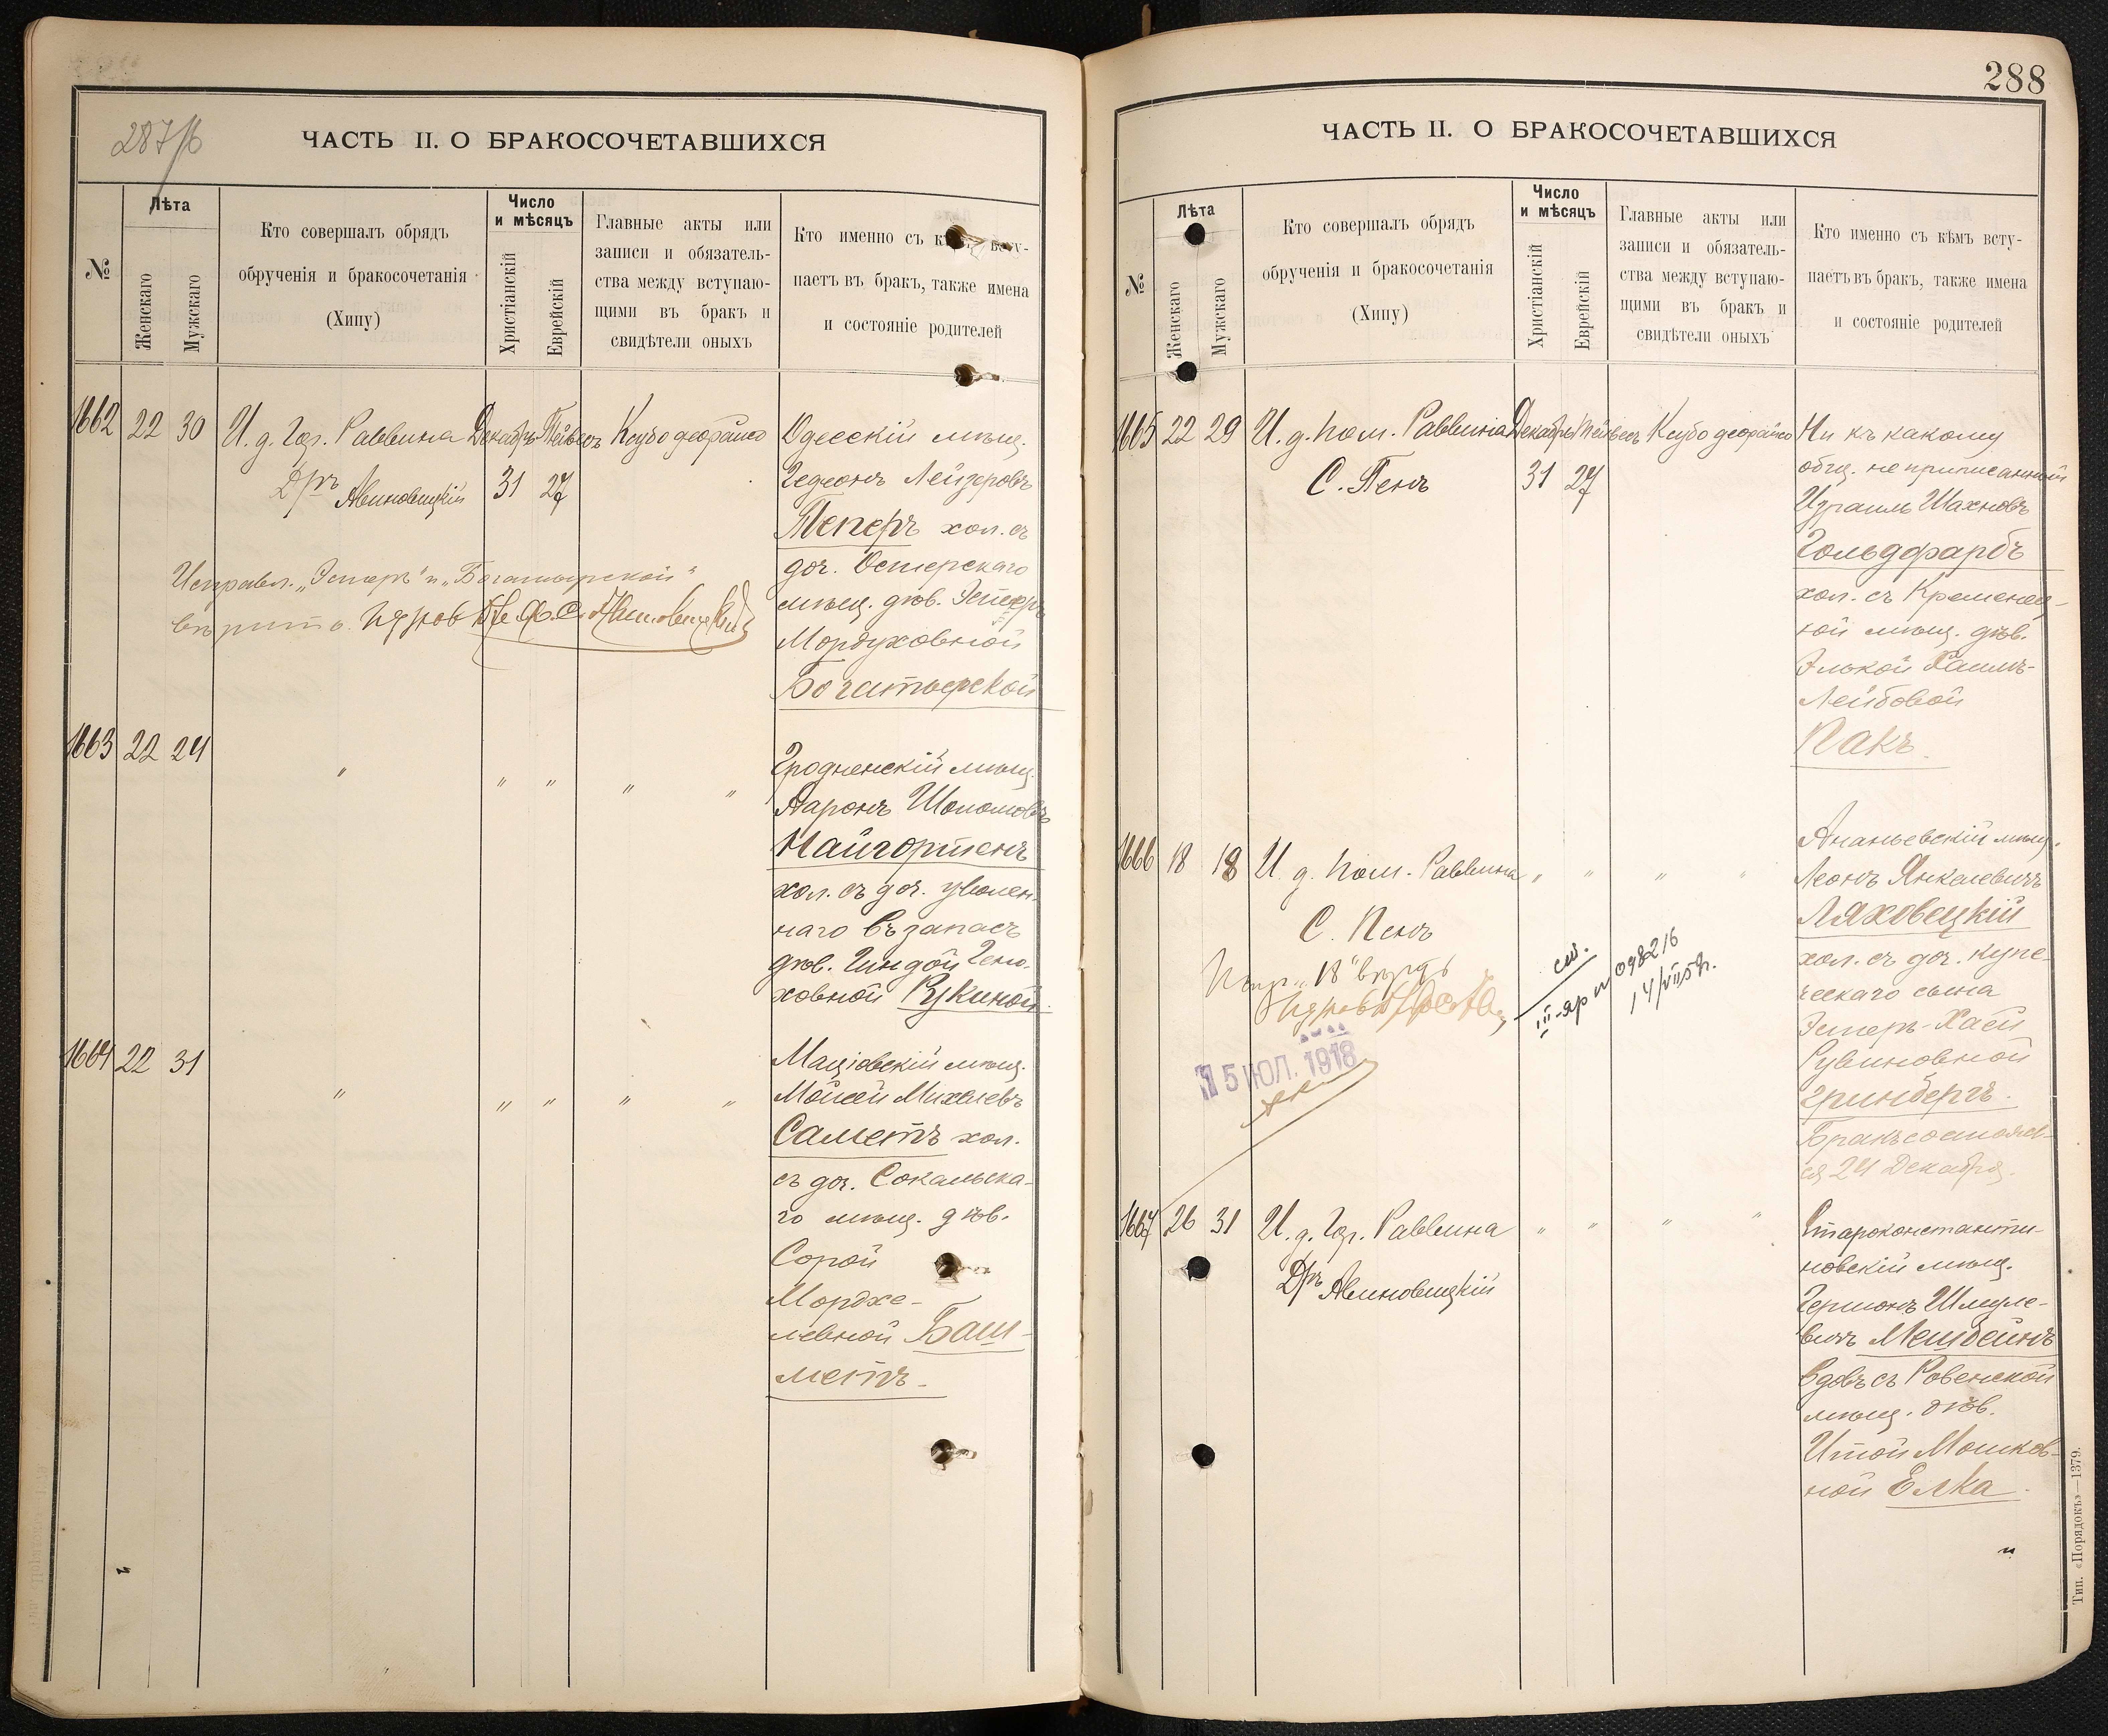 287/б
ЧАСТЬ II. О БРАКОСОЧЕТАВШИХСЯ
№
Лѣта
Женскаго
Мужскаго
Кто совершалъ обрядъ
обрученія и бракосочетанія
(Хипу)
Число
и мѣсяцъ
Христіанскій
Еврейскій
Главные акты или
записи и обязатель-
ства между вступаю-
щими въ бракъ и
свидѣтели оныхъ
Кто именно съ к всту-
паетъ въ бракъ, также имена
и состояніе родителей
1662 22 30 И. д. Гор. Раввина Декабрь Тейвесъ Ксубо деорайсо
Д/ръ Авиновицкій 31 27
Одесскій мѣщ.
Гедеонъ Лейзеровъ
Теперъ хол. съ
доч. Остерскаго
мѣщ. дѣв. Эстеръ
Мордуховной
Богатырской
Исправл. „Эстеръ" и „Богатырской"
вѣрить.
1663 22 24 " " " " "
Гродненскій мѣщ.
Ааронъ Шоломовъ
Найгортенъ
хол. съ доч. уволен-
наго въ запасъ
дѣв. Гиндой Гено-
ховной Рукиной
1664 22 31 " " " " "
Маціовскій мѣщ.
Мойсей Михелевъ
Саметъ хол.
съ доч. Сокальска-
го мѣщ. дѣв.
Сорой
Мордхе-
левной Баш-
метъ.
288
ЧАСТЬ II. О БРАКОСОЧЕТАВШИХСЯ
№
Лѣта
Женскаго
Мужскаго
Кто совершалъ обрядъ
обрученія и бракосочетанія
(Хипу)
Число
и мѣсяцъ
Христіанскій
Еврейскій
Главные акты или
записи и обязатель-
ства между вступаю-
щими въ бракъ и
свидѣтели оныхъ
Кто именно съ кѣмъ всту-
паетъ въ бракъ, также имена
и состояніе родителей
1665 22 29 И. д. Пом. Раввина Декабрь Тейвесъ Ксубо деорайсо
С. Пенъ 31 27
Ни къ какому
общ. не приписанный
Израиль Шахновъ
Гольдфарбъ
хол. съ Кременец-
кой мѣщ. дѣв.
Элькой Хаимъ-
Лейбовой
Пакъ.
1666 18 18 И. д. Пом. Раввина " " " "
С. Пенъ
Ананьевскій мѣщ.
Леонъ Янкелевичъ
Ляховецкій
хол. съ доч. купе-
ческаго сына
Эстеръ-Хаей
Рувиновной
Гринбергъ.
Бракъ состоял-
ся 24 Декабря.
15 ИЮЛ. 1918
1667 26 31 И. д. Гор. Раввина " " " "
Д/ръ Авиновицкій
Староконстанти-
новскій мѣщ.
Гершонъ Шмуле-
вичъ Мешбейнъ
вдовъ съ Ровенской
мѣщ. дѣв.
Итой Мошков-
ной Елка.
Тип. «Порядокъ»—1379.